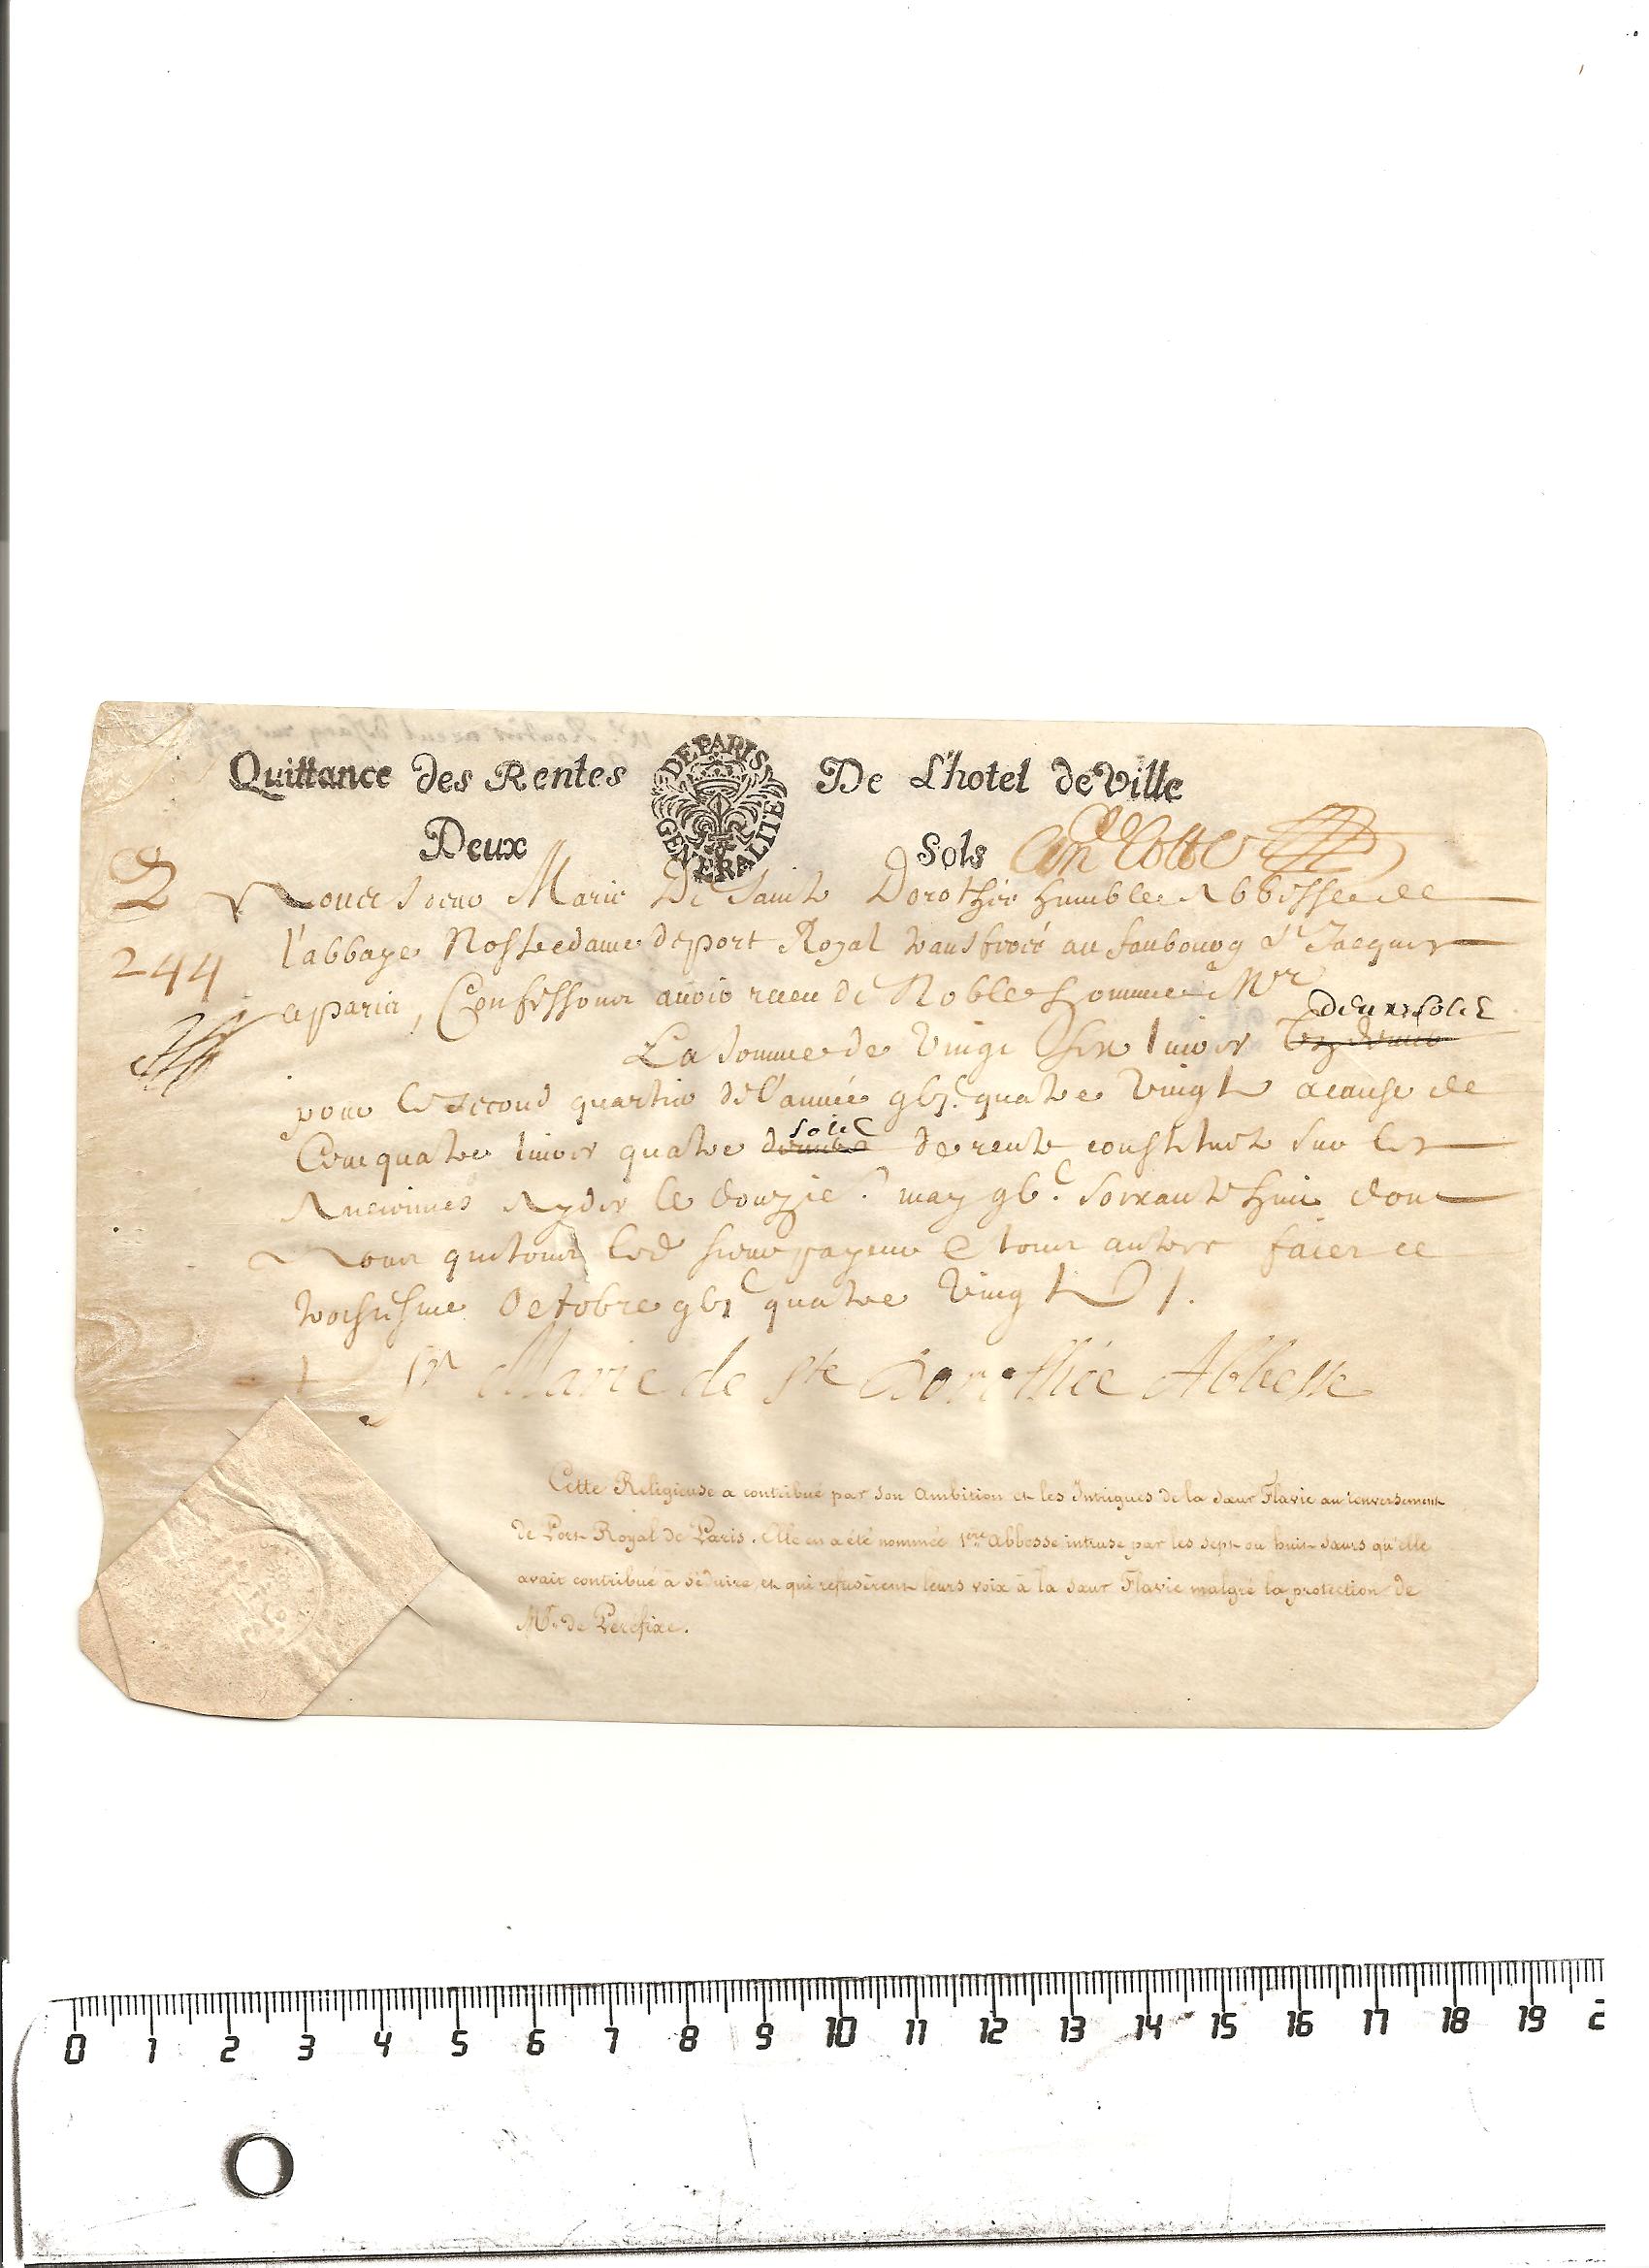 Quittance des Rentes De L'hotel de Ville
DE PARIS GENERALITE
Deux Sols
Nous Soeur Marie De Sainte Dorothée humble Abbesse de
244 l'abbaye Nostre dame de port Royal transferé au faubourg St Jacques
a paris, Confessons avoir receu de Noble homme Mr
deux solz
La somme de Vingt six livres
pour le second quartier de l'année gbjc quatre vingt a cause de
solz
Cent quatre livres quatre deniers de rente constitué sur les
Anciennes Aydes le douzie. may gbjc soixante huit dont
Nous quitons led sieur payeur et tous autres fait ce
troisiesme Octobre gbjc quatre vingt 1.
Sr Marie de Ste Dorothée Abbesse
Cette Religieuse a contribué par son Ambition et les Intrigues de la sœur Flavie au renversement
de Port Royal de Paris. elle en a été nommée 1ere Abbesse intruse par les sept ou huit sœurs qu'elle
avait contribué à séduire, et qui refusèrent leurs voix à la sœur Flavie malgré la protection de
Mr. de Perefixe.
0 1 2 3 4 5 6 7 8 9 10 11 12 13 14 15 16 17 18 19 2